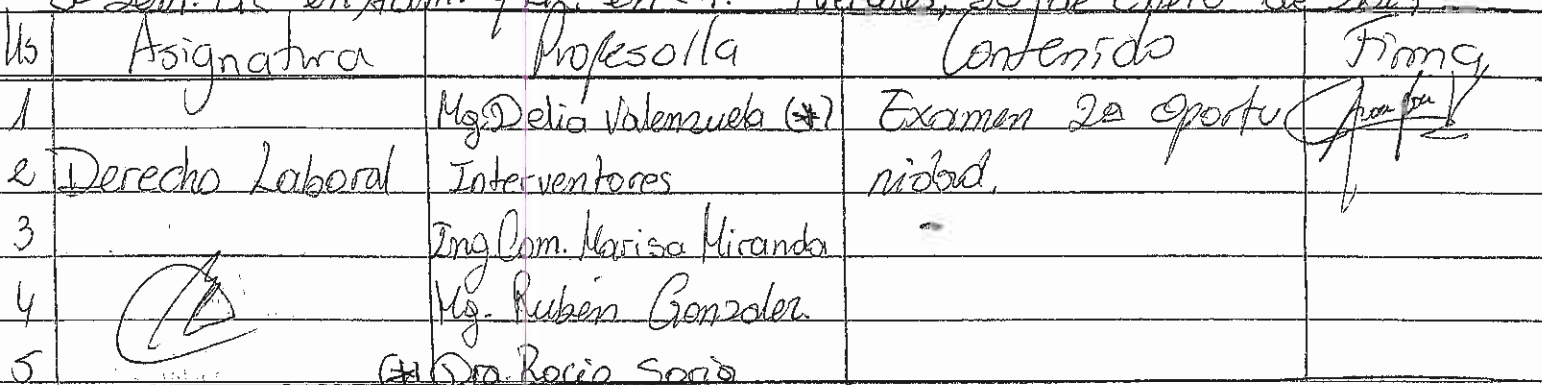 Hs Asignatura Profesor/a Contenido Firma
1 Mg. Delia Valenzuela (*) Examen 2ª oportu
2 Derecho Laboral Interventores nidad.
3 Ing Com. Marisa Miranda
4 Mg. Rubén Gonzalez.
5 (*) Dra. Rocío